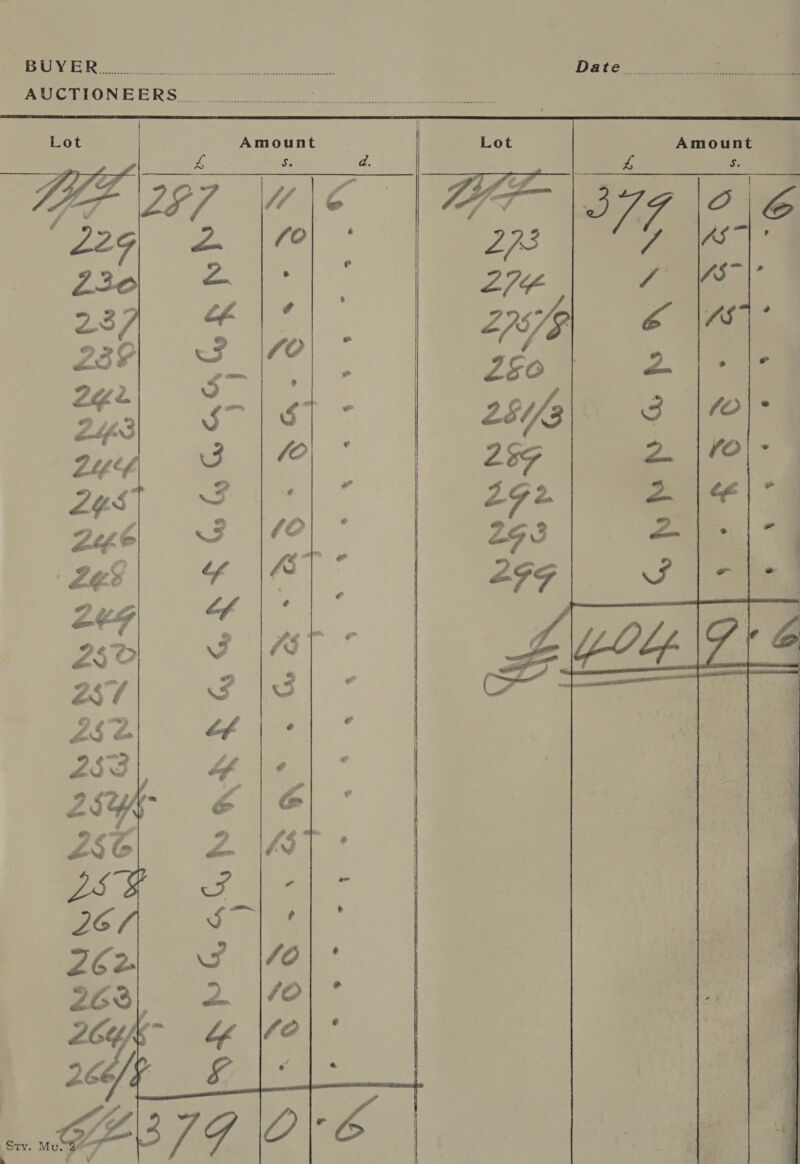 BUYER Date
AUCTIONEERS
Lot Amount
£ s. d.
B/F 287 11 6
229 2 10 -
230 2 - -
237 4 - -
239 3 10 -
242 5 - -
243 5 5 -
244 3 10 -
245 3 - -
246 3 10 -
248 4 15 -
249 4 - -
250 3 15 -
251 3 3 -
252 4 - -
253 4 - -
254/5 6 6 -
256 2 15 -
258 3 - -
261 5 - -
262 3 10 -
263 2 10 -
264/5 4 10 -
266/8 8 - -
C/F 379 0 - 6
Sty. Mu. 2
Lot Amount
£ s.
B/F 379 0 6
273 1 15 -
274 1 15 -
275/8 6 15 -
280 2 - -
281/3 3 10 -
289 2 10 -
292 2 4 -
293 2 - -
299 3 - -
£ 404 9 - 6